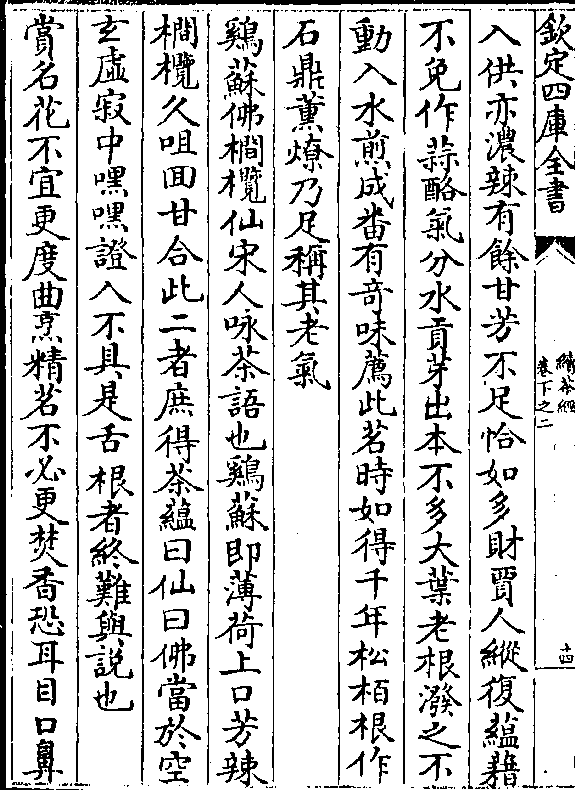 欽定四庫全書
續茶經
卷下之二
十四
入供亦濃辣有餘甘芳不足恰如多財賈人縱復蘊藉
不免作蒜酪氣分水貢芽出本不多大葉老根潑之不
動入水煎成畨有竒味薦此茗時如得千年松栢根作
石鼎薰燎乃足稱其老氣
鷄蘇佛橄欖仙宋人咏茶語也鷄蘇即薄荷上口芳辣
橄欖久咀回甘合此二者庶得茶蘊曰仙曰佛當於空
玄虛寂中嘿嘿證入不具是舌根者終難與説也
賞名花不宜更度曲烹精茗不必更焚香恐耳目口鼻